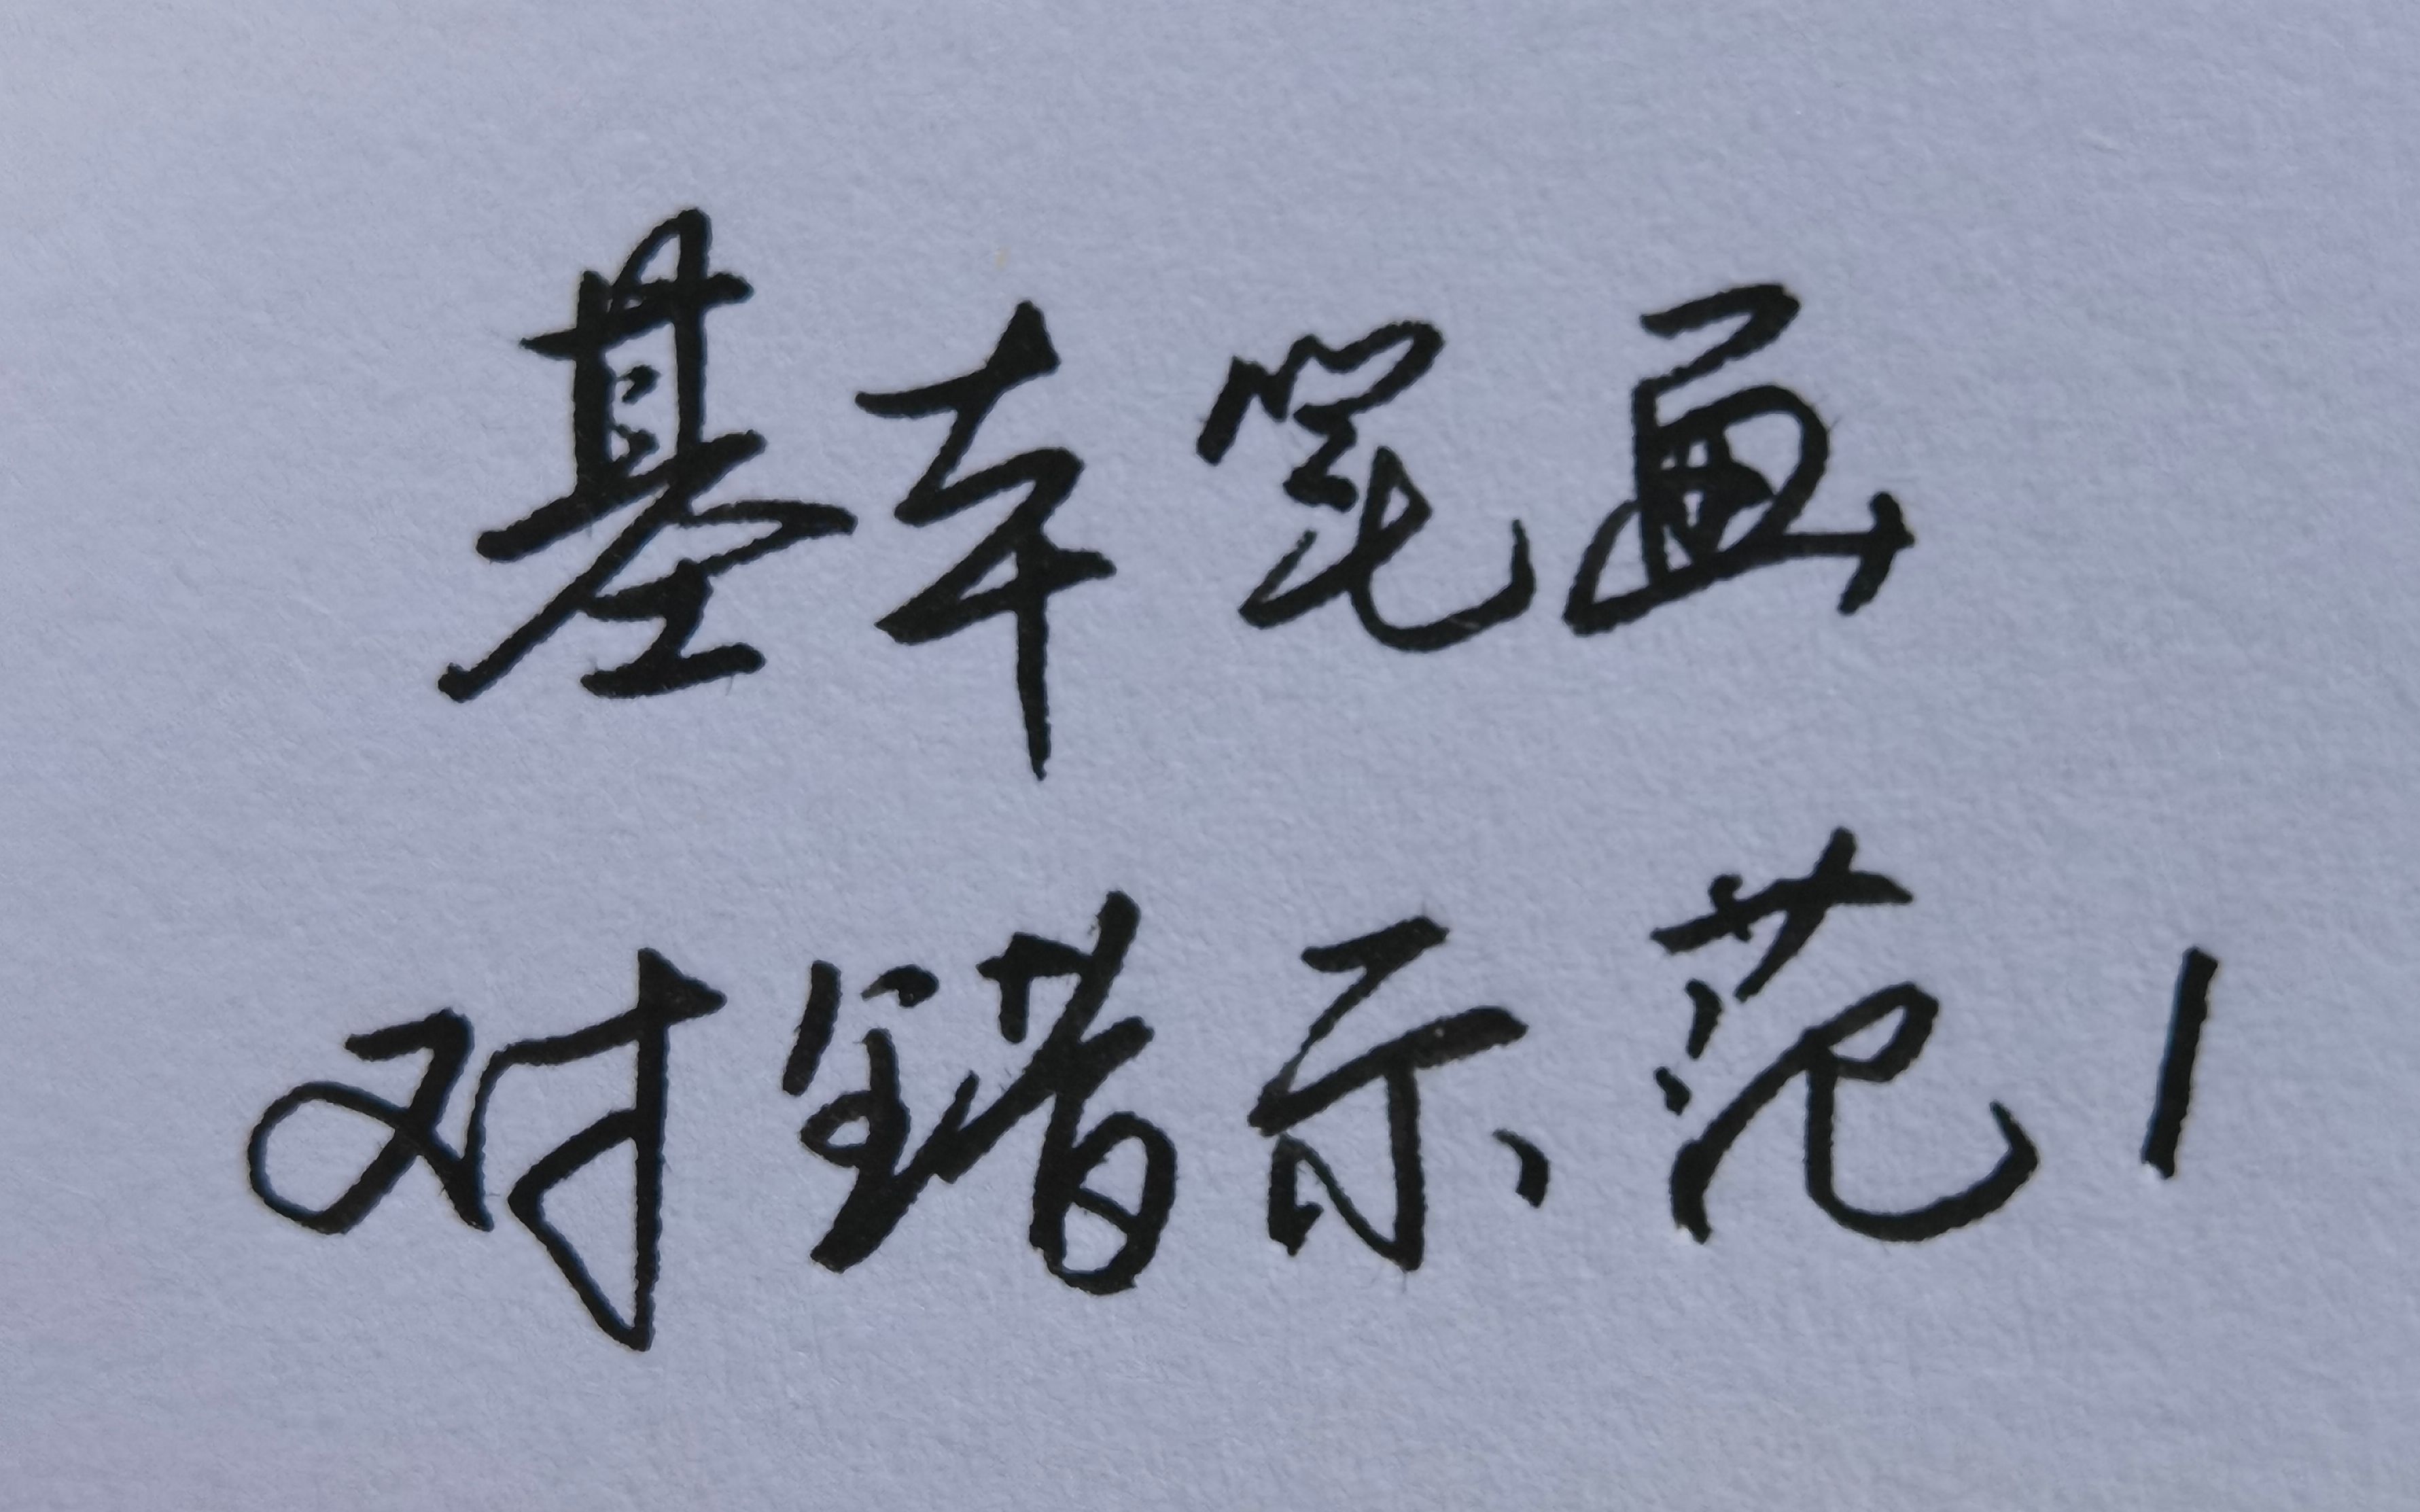 基本笔画
对错示范！